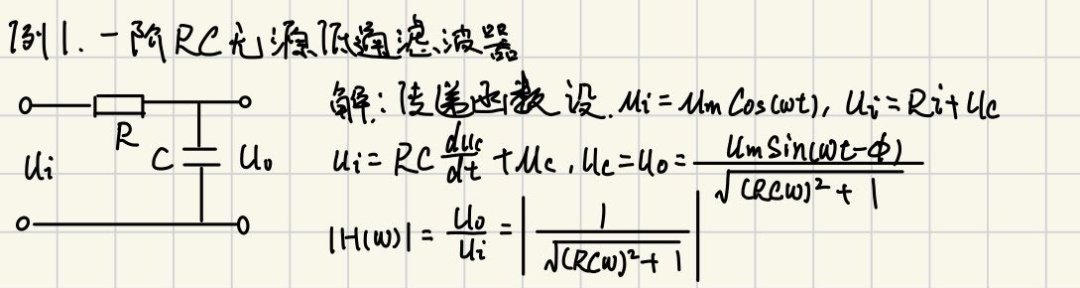 例1. 一阶RC无源低通滤波器
解: 传递函数 设. Ui = Um Cos(ωt), Ui = Ri + Uc
R
C
Ui
Uo
Ui = RC duc/dt + Uc, Uc = Uo = Um Sin(ωt-φ)/√((RCω)²+1)
|H(ω)| = Uo/Ui = |1/√((RCω)²+1)|